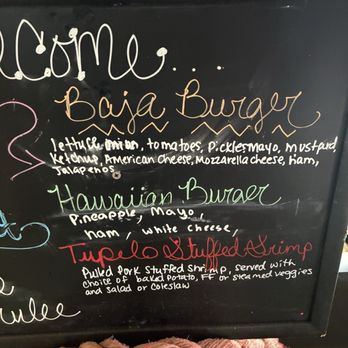 elcome....
Baja Burger
lettuce onion, tomatoes, pickles mayo, mustard,
Ketchup, American cheese, Mozzarella cheese, ham,
Jalapenos
Hawaiian Burger
Pineapple, Mayo,
ham, white cheese,
Tupelo Stuffed Srimp
Pulled Pork Stuffed Shrimp, served with
choice of baked potato, FF or steamed veggies
and salad or coleslaw